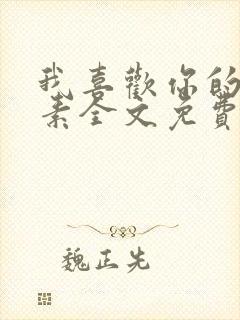 我喜歡你的
素全文免費
魏正先